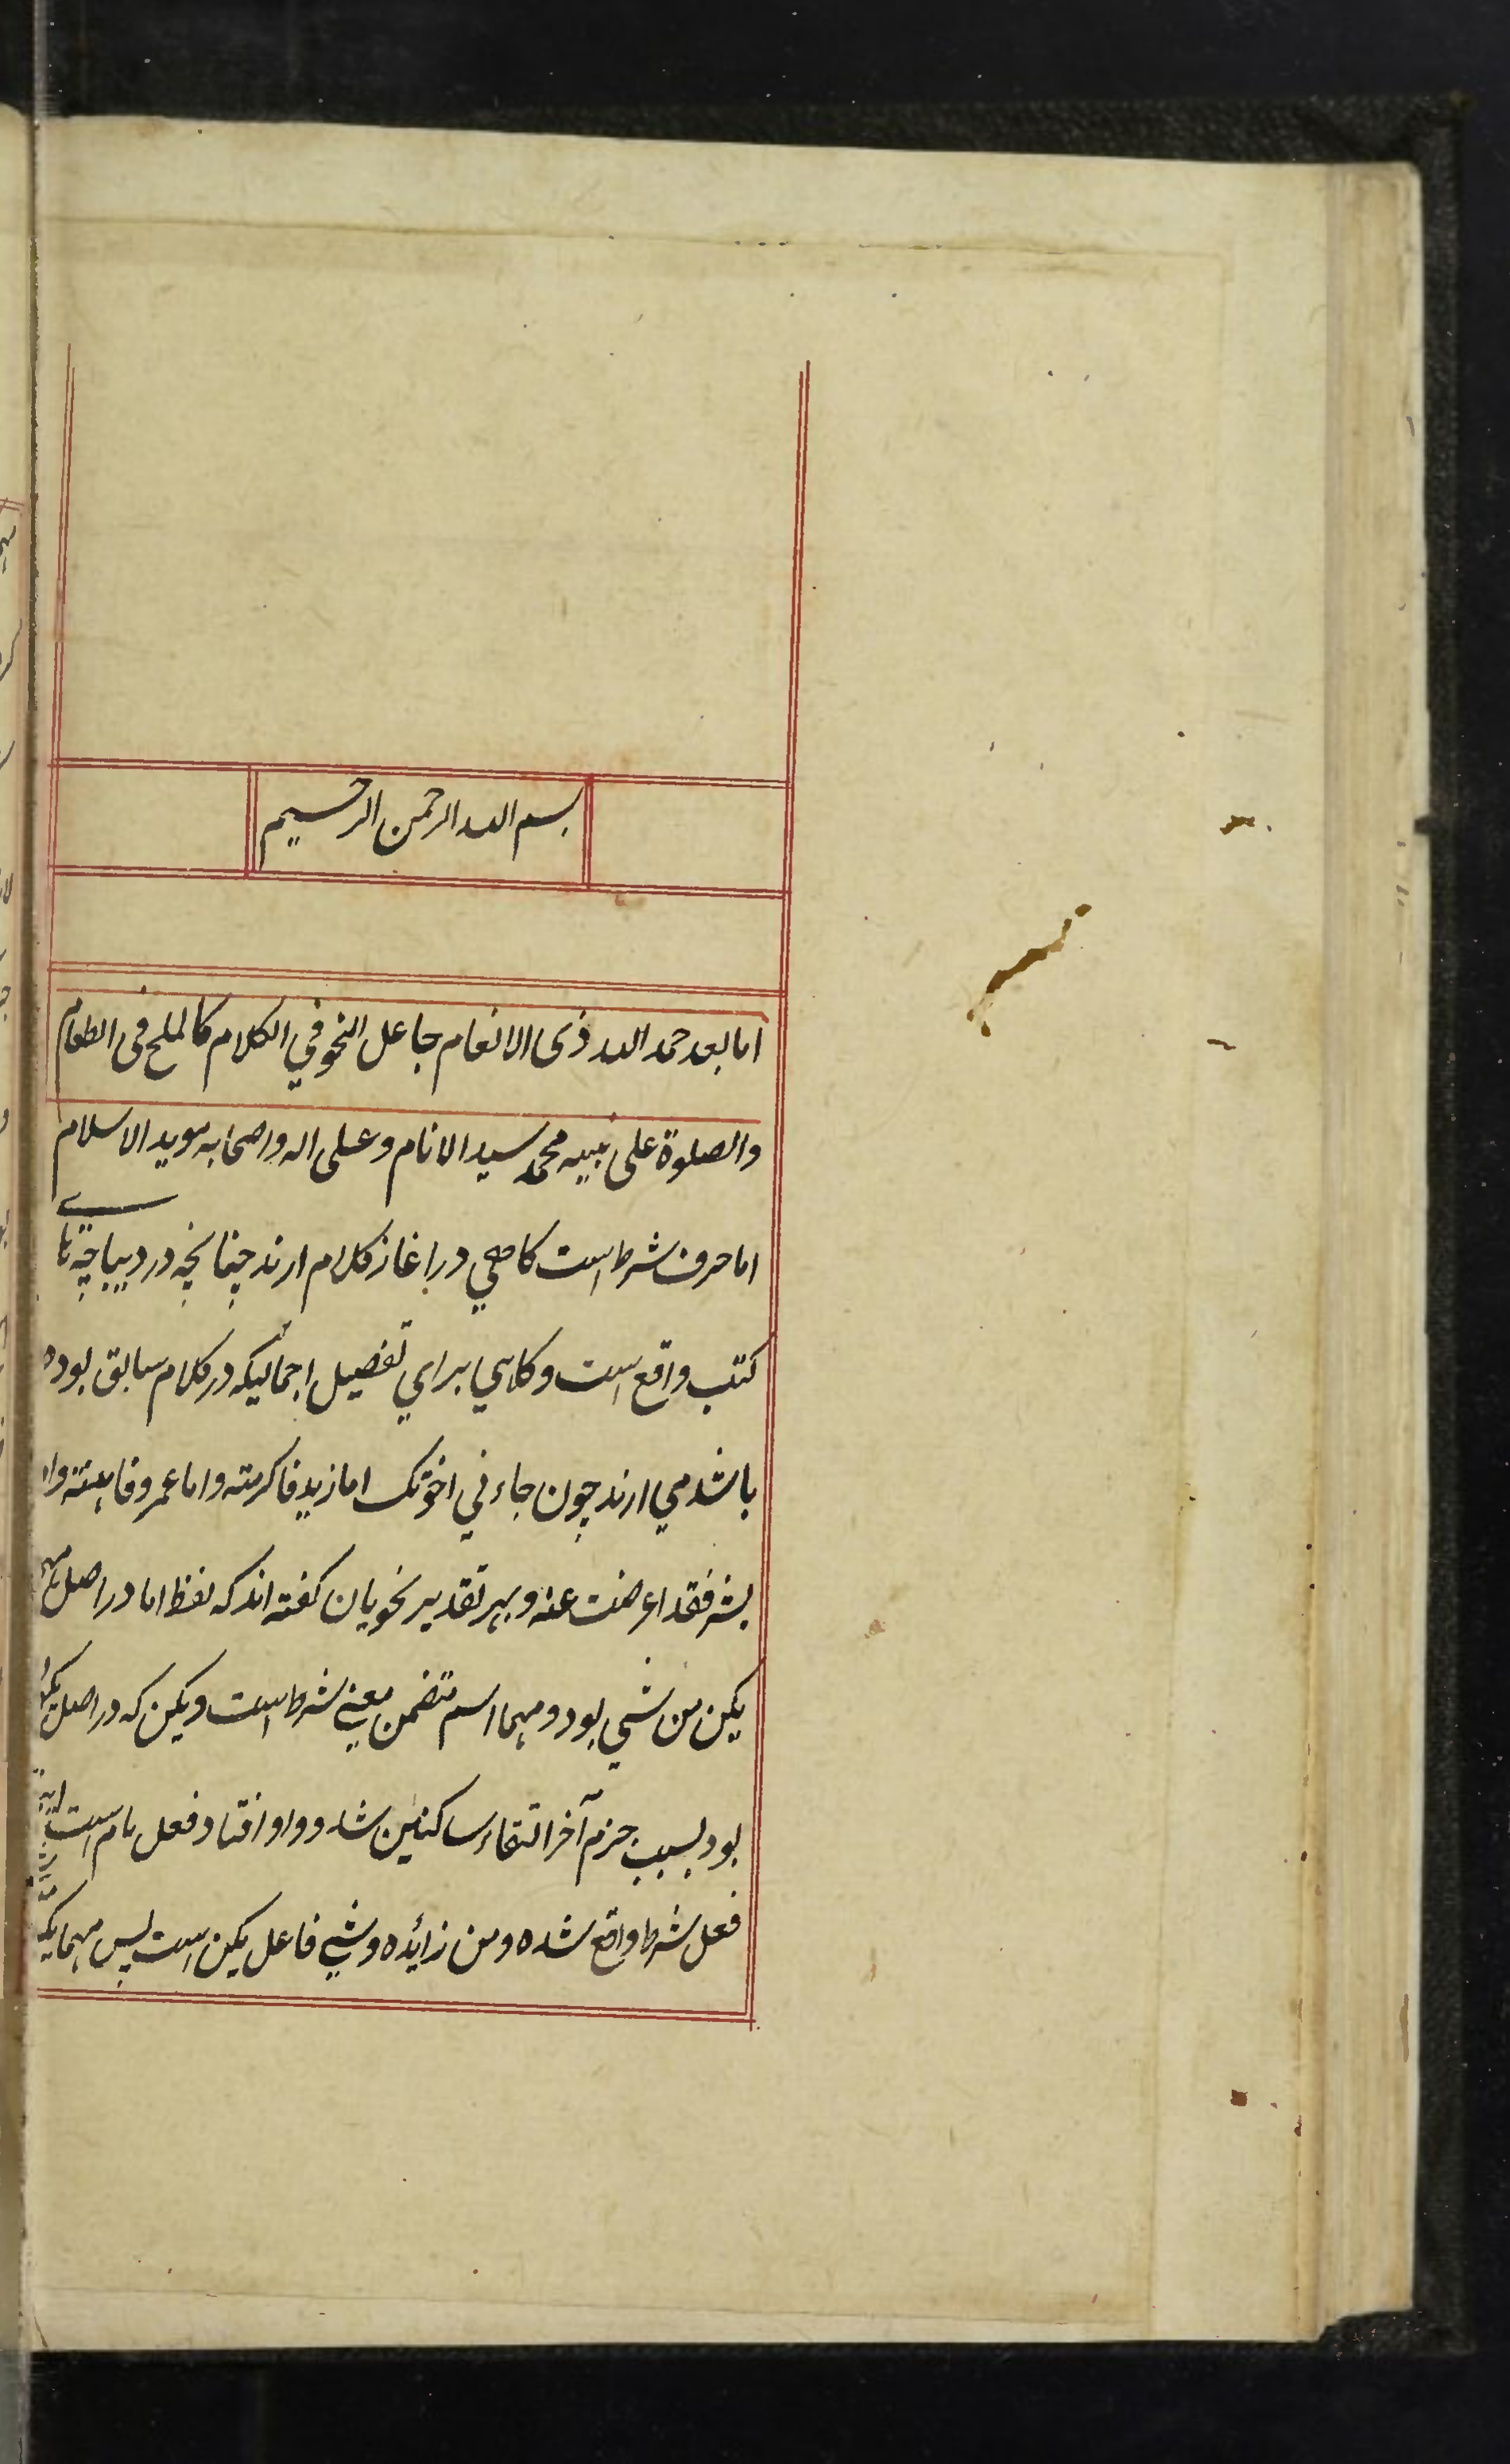 بسم الله الرحمن الرحيم
اما بعد حمد الله ذى الانعام جاعل النحو في الكلام كالملح فى الطعام
والصلوة على نبيه محمد سيد الانام وعلى اله واصحابه مويد الاسلام
اما حرف شرط است كاهي در اغاز كلام ارند چنانچه در ديباچه‌هاي
كتب واقع است وكاهي براي تفصيل اجماليكه در كلام سابق بوده
باشد مي ارند چون جاءني اخوتك اما زيد فاكرمته واما عمرو فاهنته واما
بشر فقد اعرضت عنه و بهر تقدير نحويان كفته اند كه لفظ اما در اصل مهما
يكن من شي بود و مهما اسم متضمن معني شرط است و يكن كه در اصل يكون
بود بسبب جزم آخر التقاء ساكنين شد و واو افتاد فعل تام است
فعل شرط واقع شده ومن زائده وشي فاعل يكن است پس مهما يكن